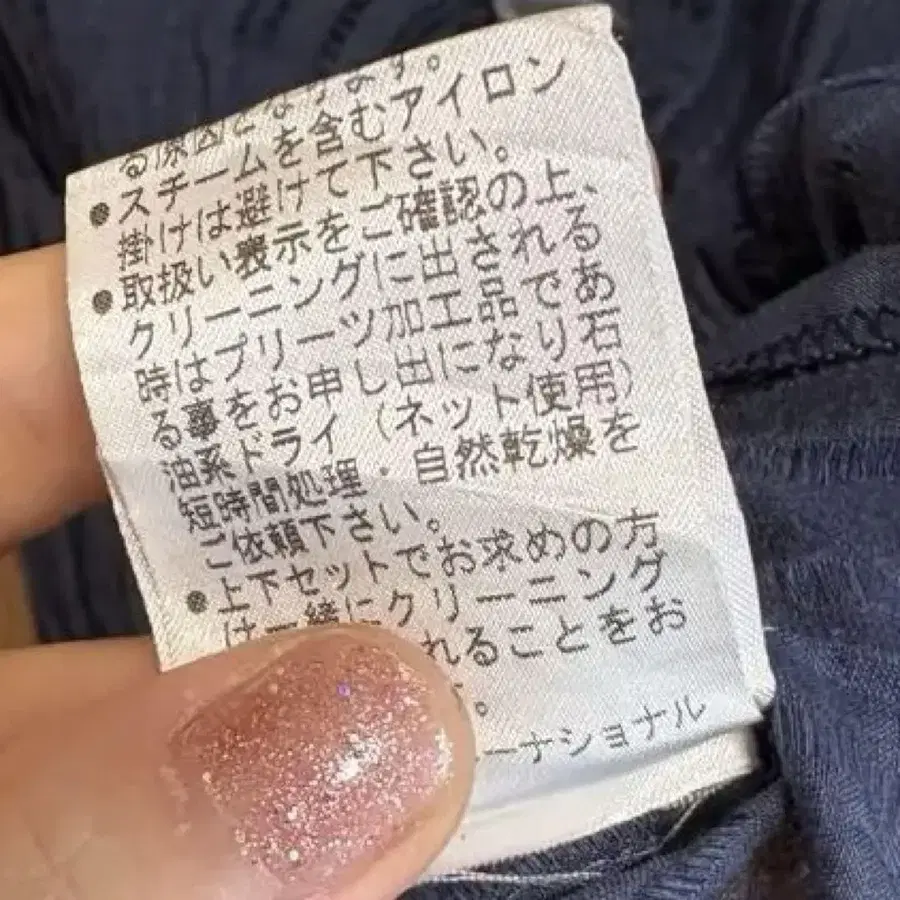 る原因となります。
●スチームを含むアイロン
掛けは避けて下さい。
●取扱い表示をご確認の上、
クリーニングに出される
時はプリーツ加工品であ
る事をお申し出になり石
油系ドライ(ネット使用)
短時間処理・自然乾燥を
ご依頼下さい。
●上下セットでお求めの方
は一緒にクリーニング
れることをお
。
ーナショナル